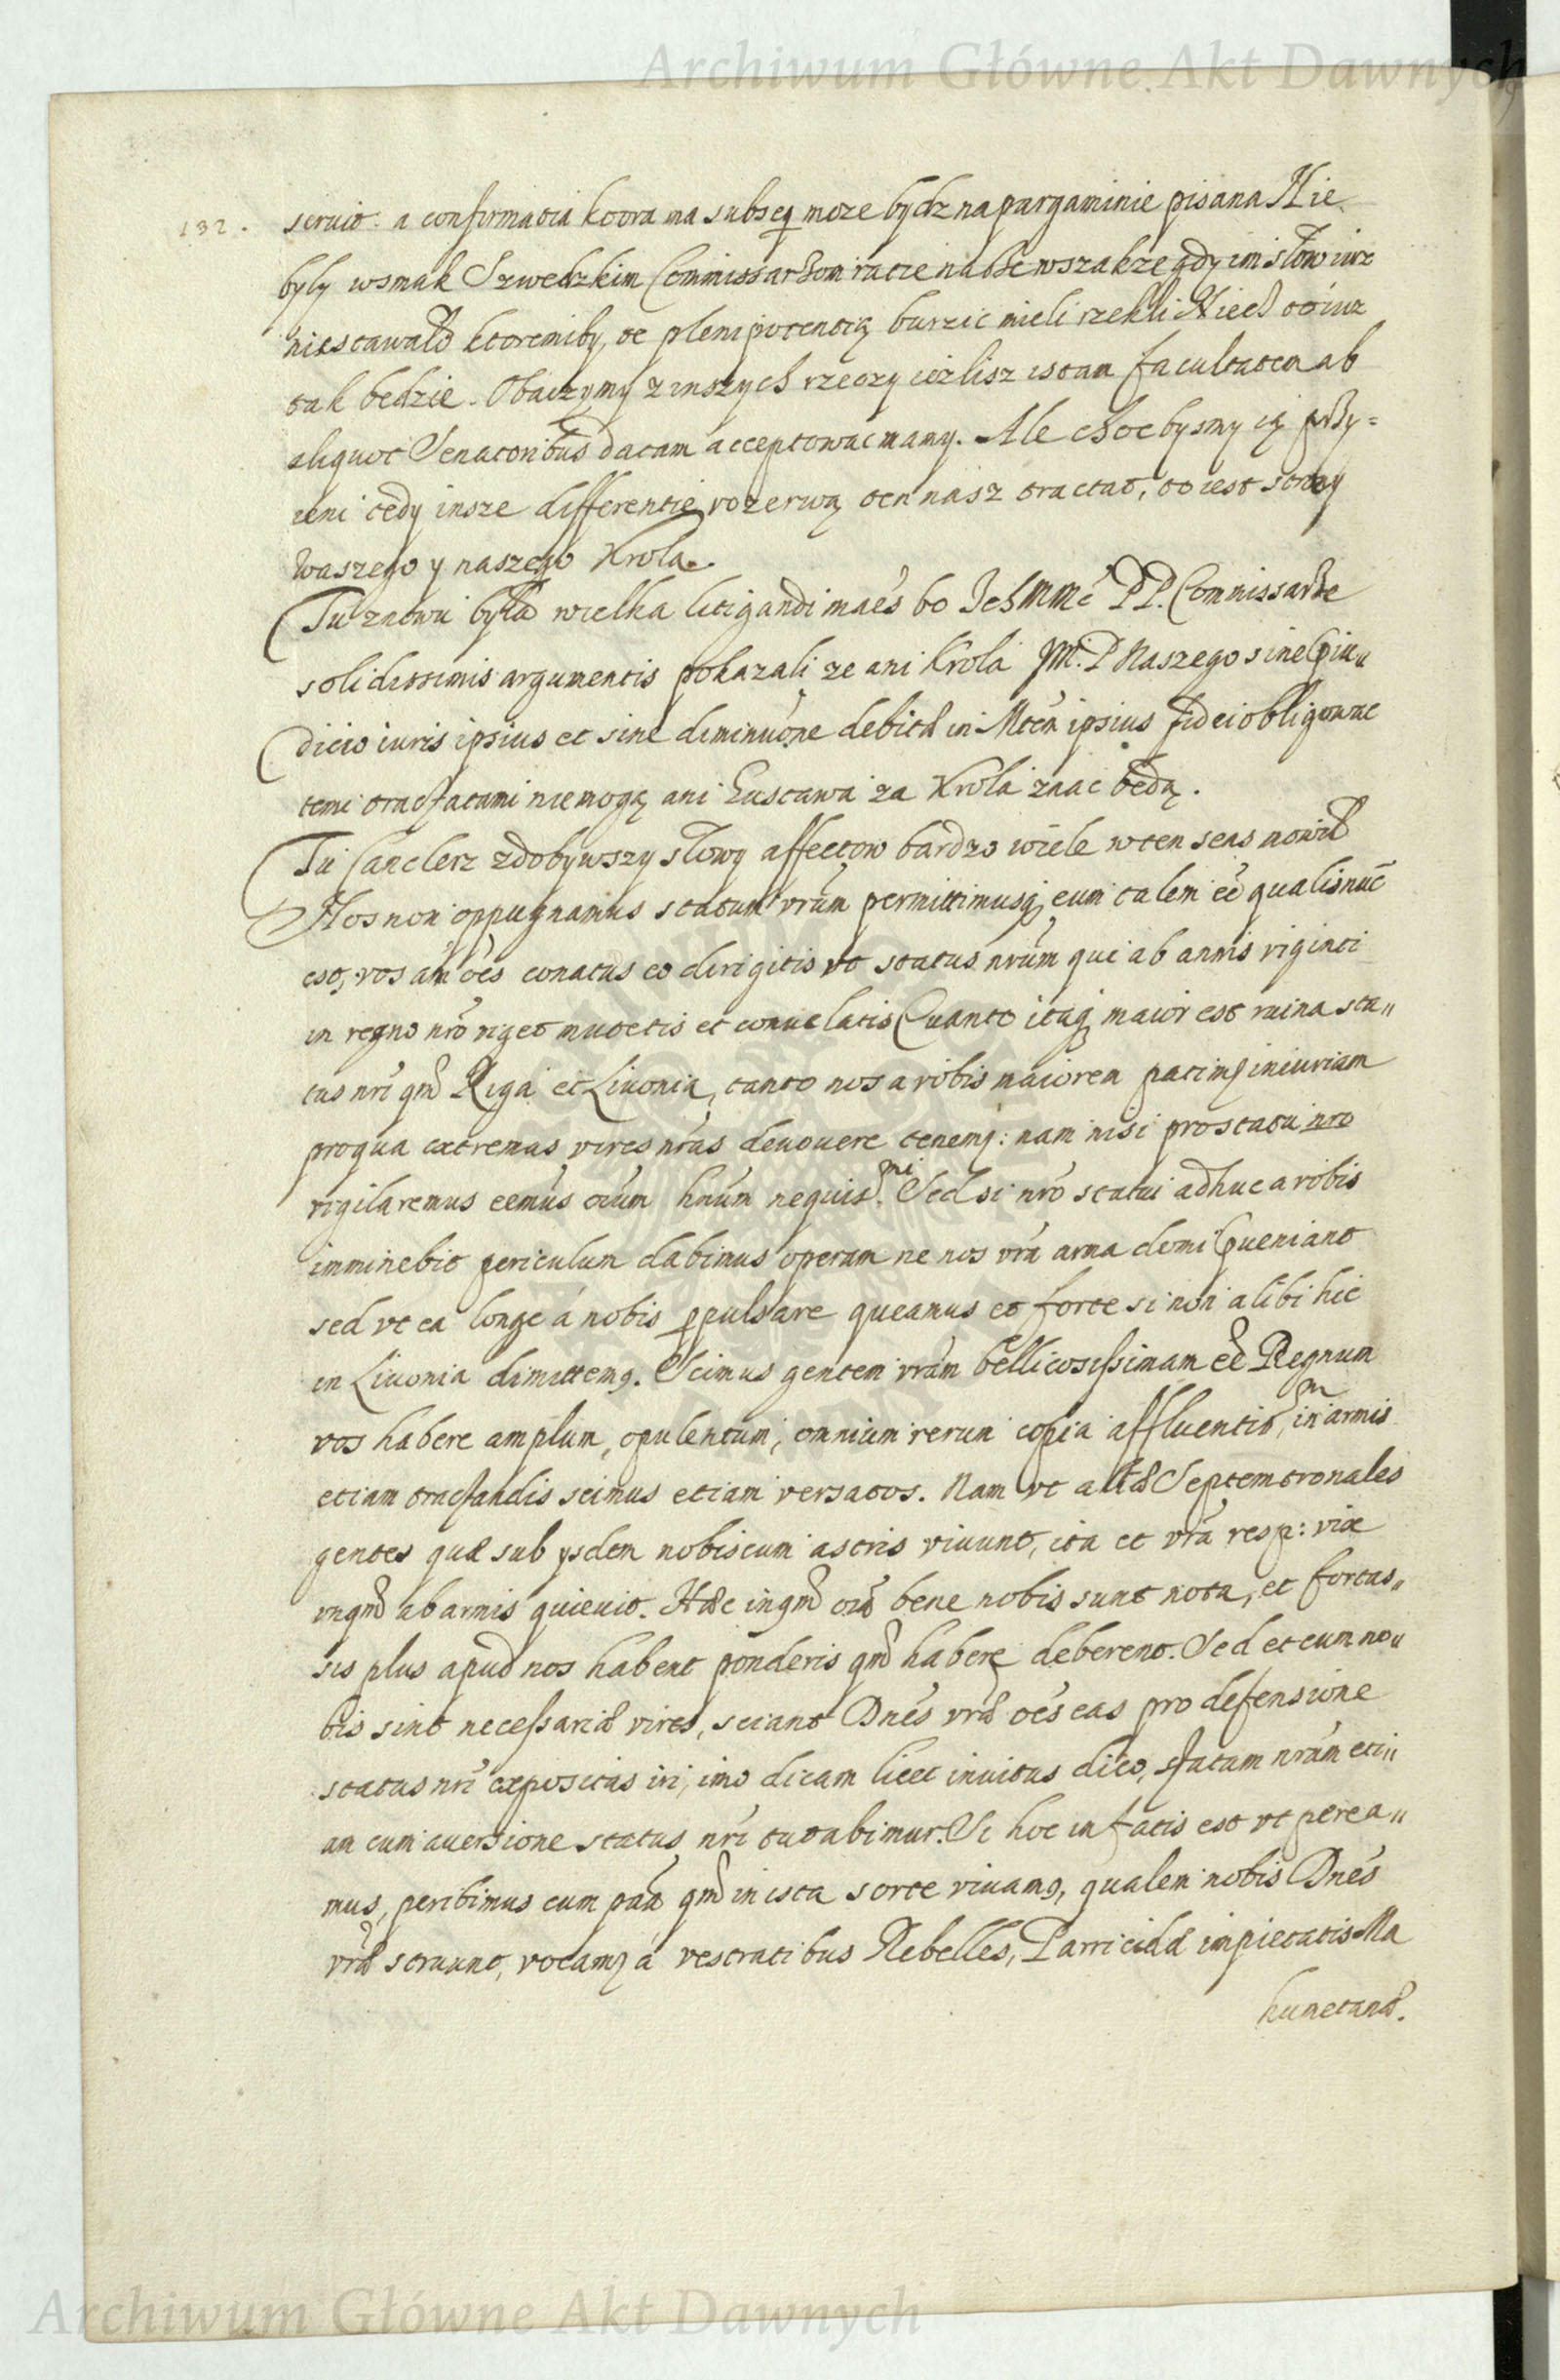 Archiwum Główne Akt Dawnych
132. seruit. a confirmatia ktora ma subseq̃ moze bydz na pargaminie pisana Nie
były wsmak Szwedzkim Commissarzom racie nasze wszakze gdy im słow iuz
niestawało ktoremiby te plenipotentią burzic mieli rzekli Niech to iuz
tak bedzie. Obaczymy z inszych rzeczy iezlisz istam facultatem ab
aliquot Senatoribus datam acceptowac mamy. Ale chocbysmy ią przy=
ieni tedy insze differentie rozerwą ten nasz tractat, to iest strony
Waszego y naszego Krola.
Tu znowu była wielka litigandi maẽs bo Ichmmć PP. Commissarze
solidissimis argumentis pokazali ze ani Krola JM. P Naszego sine Ꝓiu„
dicio iuris ipsius et sine diminuõne debitæ in Mtem ipsius fidei obligowac
temi tractatami niemogą ani Gustawa za Krola znac będą.
Tu Canclerz zdobywszy słowy affectow bardzo wiele wten sens mowił
Nos non oppugnamus statum vrũm permittimusq; eum talem eẽ qualis nuc̃
est, vos aũt oẽs conatus eo dirigitis vt status nrũm qui ab annis viginti
in regno nrõ viget mutetis et conuelatis Quanto itaq; maior est ruina sta„
tus nrĩ qm̃ Riga et Liuonia, tanto nos a vobis maiorem patimꝰ iniuriam
pro qua extremas vires nrãs deuouere tenemꝰ: nam nisi pro statu nrõ
vigilaremus eemũs oium hoũm nequisꝰmi. Sed si nrõ statui adhuc a vobis
imminebit periculum dabimus operam ne nos vrã arma domi Ꝓueniant
sed vt ea longe á nobis ꝓpulsare queamus et forte si non alibi hic
in Liuonia dimittemꝰ. Scimus gentem vrãm bellicosissimam eẽ Regnum
vos habere amplum, opulentum, omnium rerum copia affluentiꝰm, in armis
etiam tractandis scimus etiam versatos. Nam vt aliæ Septemtronales
gentes quæ sub ysdem nobiscum astris viuunt, ita et vrã resp: vix
vnqm̃ ab armis quieuit. Hæc inqm̃ oiã bene nobis sunt nota, et fortas„
sis plus apud nos habent ponderis qm̃ habere deberent. Sed et cum no„
bis sint necessariæ vires, sciant Dnẽs vræ̃ oẽs eas pro defensione
status nrĩ expositas iri, imo dicam licet inuitus dico, statum nrũm eti„
am cum auersione status nrĩ tutabimur. Si hoc in fatis est vt perea„
mus, peribimus cum pñã qm̃ in ista sorte viuamꝰ, qualem nobis Dnẽs
vræ̃ struunt, vocamꝰ á vestratibus Rebelles, Parricidæ impietatis Ma
humetanæ.
Archiwum Główne Akt Dawnych